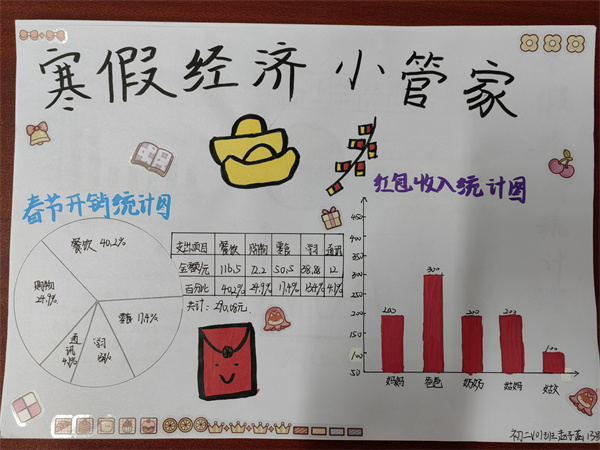 寒假经济小管家
春节开销统计图
餐饮 40.2%
购物
24.9%
零食 17.4%
通讯
4.1%
学习
支出项目 餐饮 购物 零食 学习 通讯
金额/元 116.5 72.2 50.5 38.88 12
百分比 40.2% 24.9% 17.4% 13.4% 4.1%
共计：290.08元
红包收入统计图
450
400
350
300
250
200
150
100
50
200
300
200
200
100
妈妈 爸爸 奶奶 姑妈